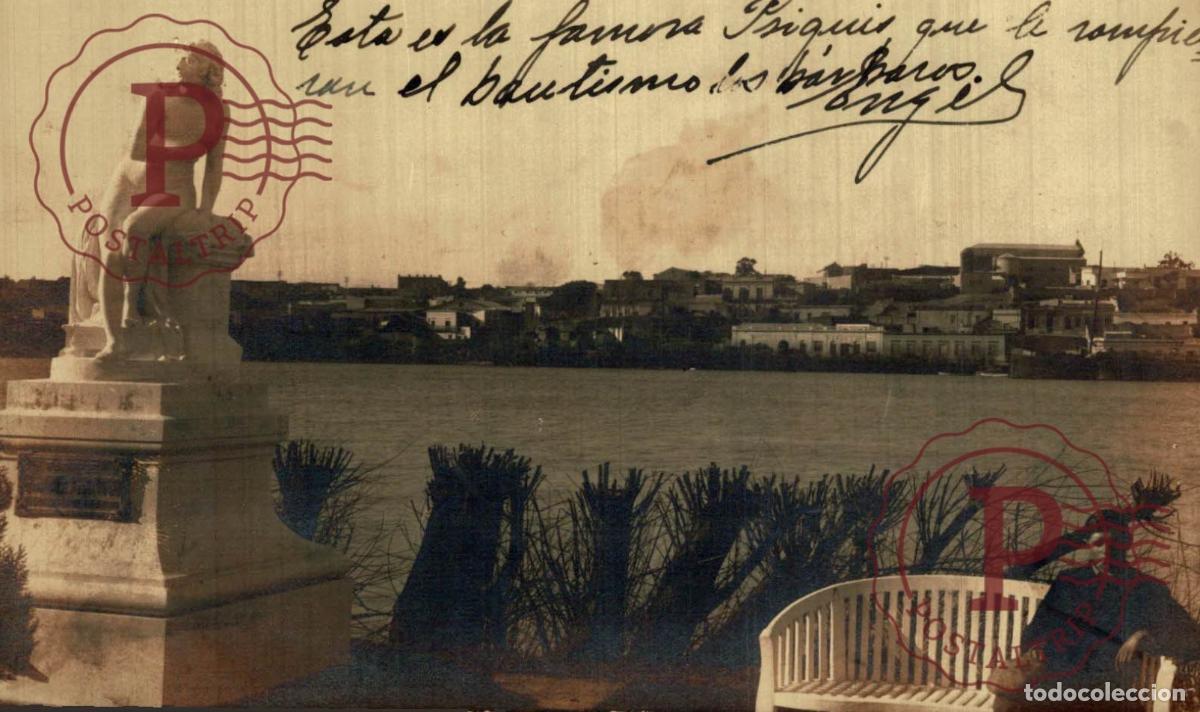 Esta es la famosa Psiquis que le rompie-
ron el bautismo los bárbaros.
Engel
P
POSTALTRIP
P
POSTALTRIP
todocoleccion